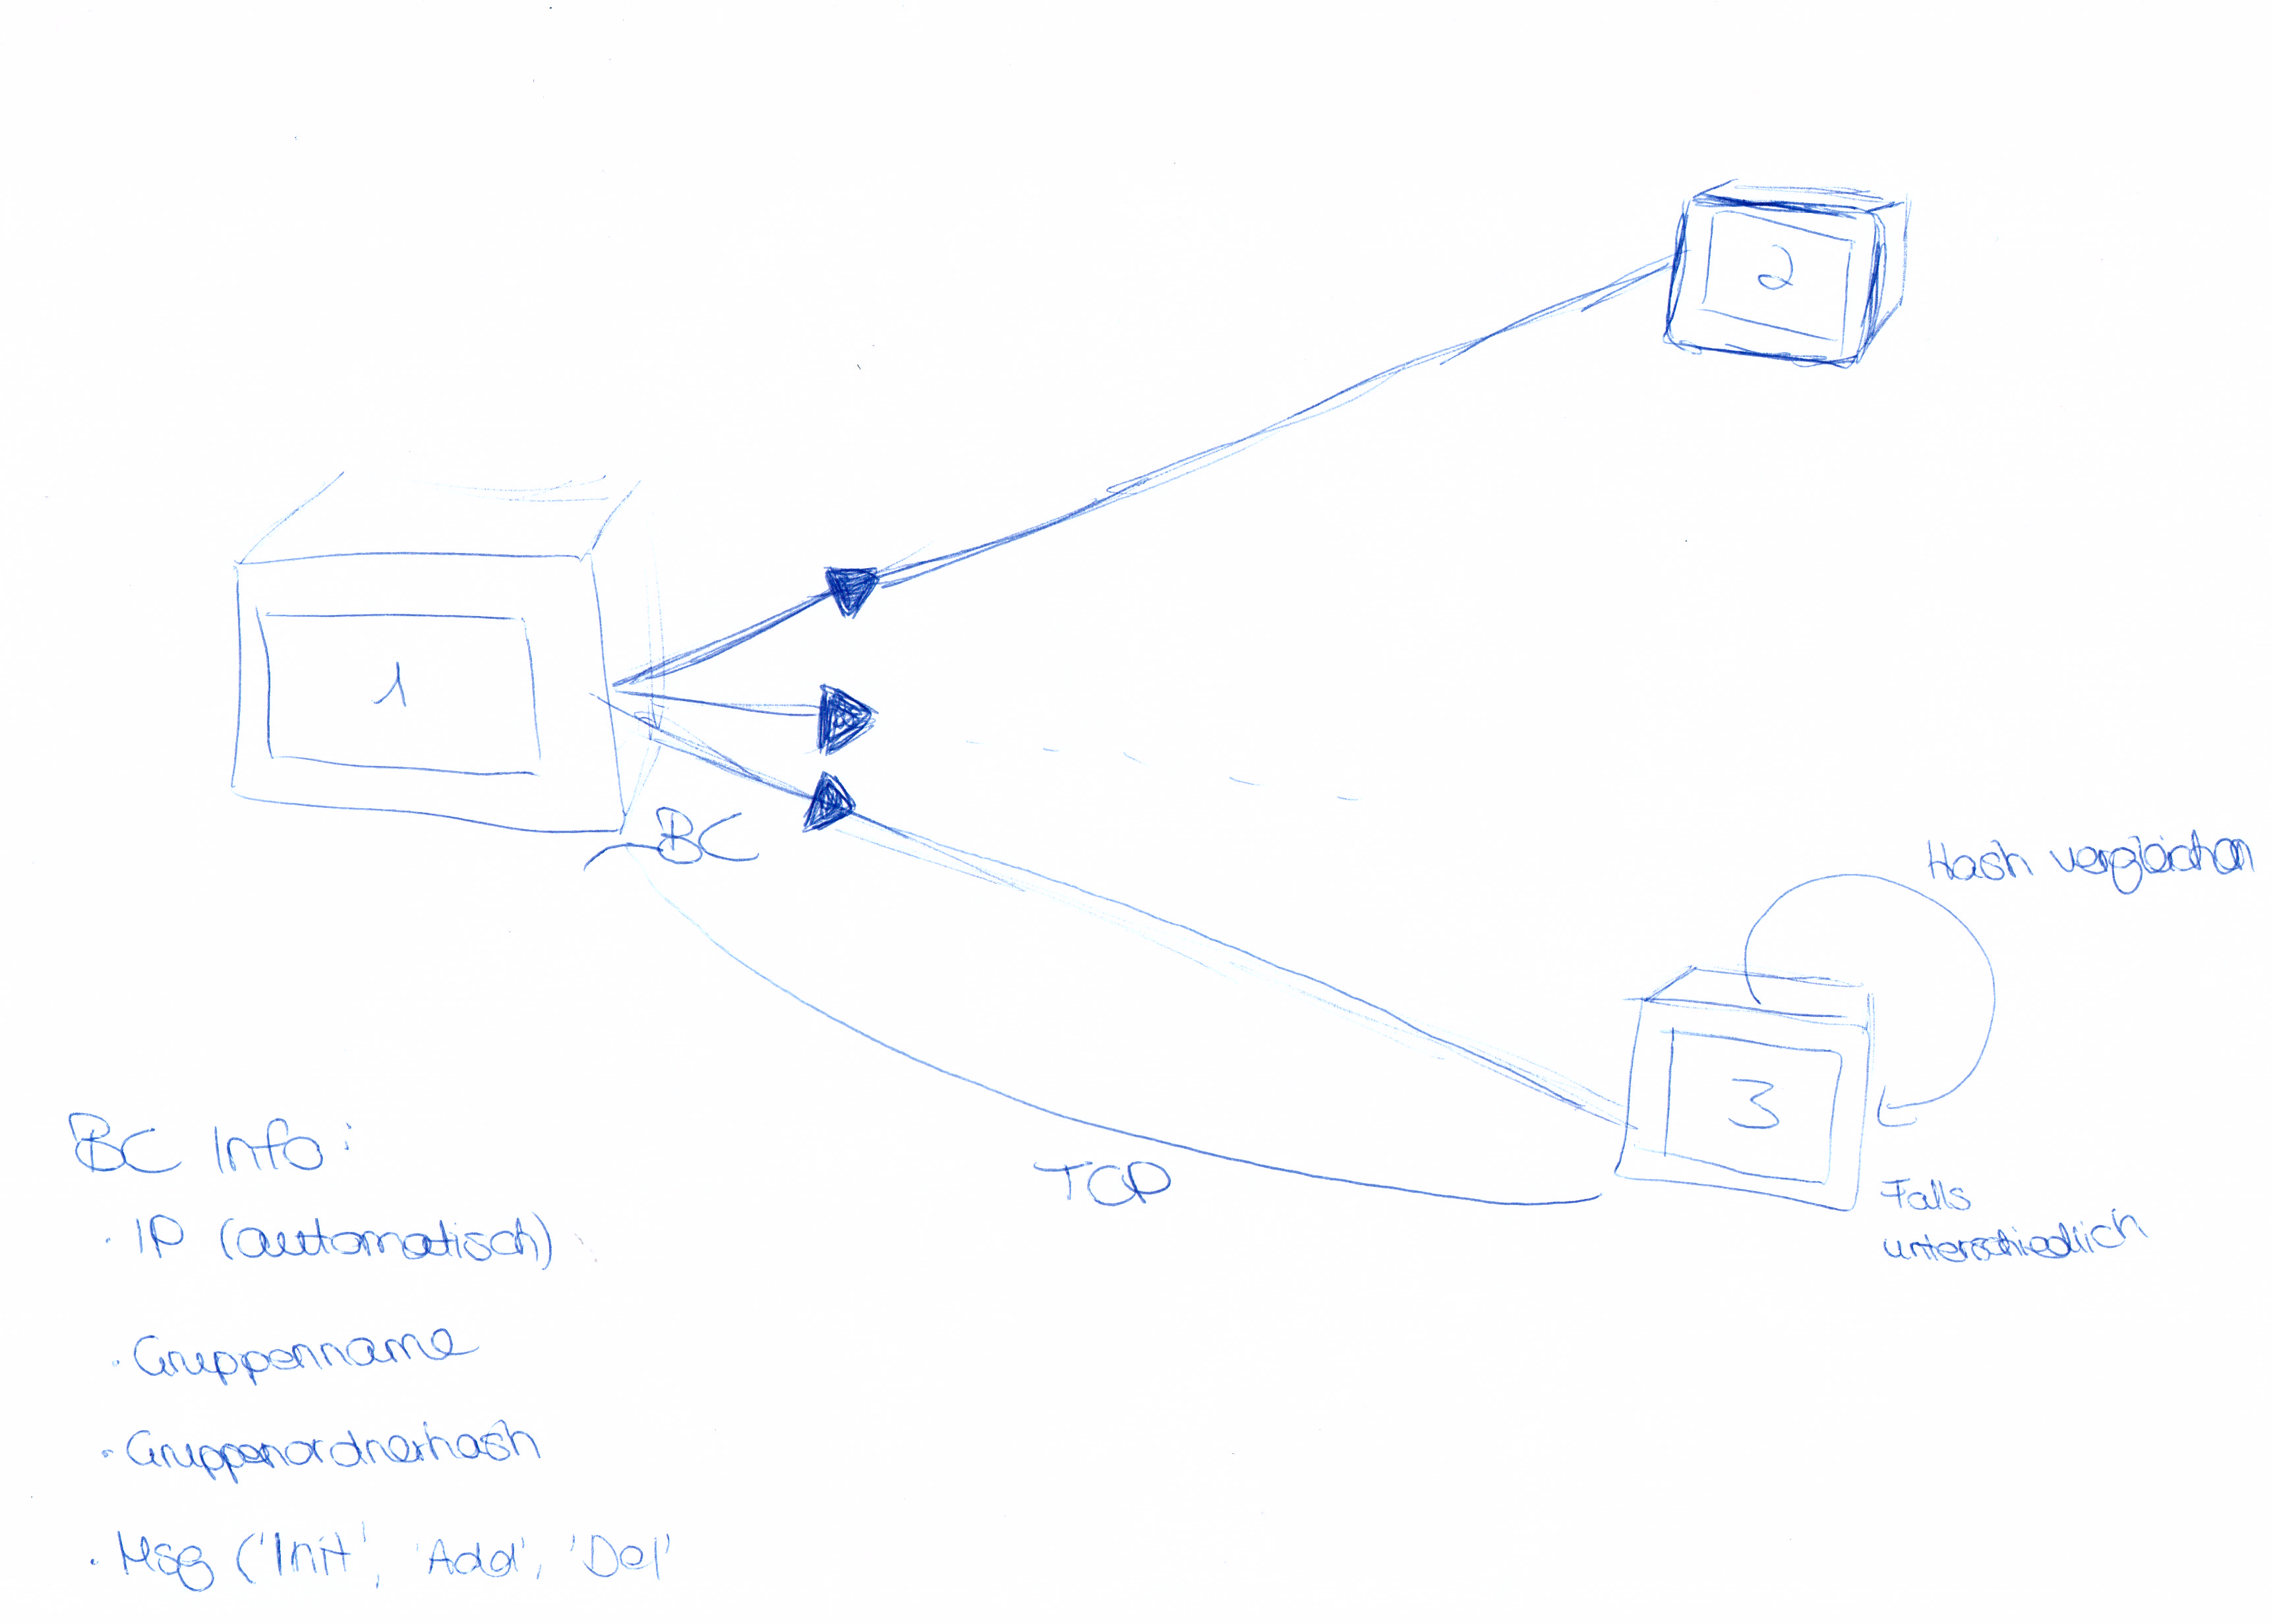 2
1
BC
Hash vergleichen
3
TCP
Falls
unterschiedlich
BC Info:
· IP (automatisch)
· Gruppenname
· Gruppenordnerhash
· Msg ('Init', 'Add', 'Del'